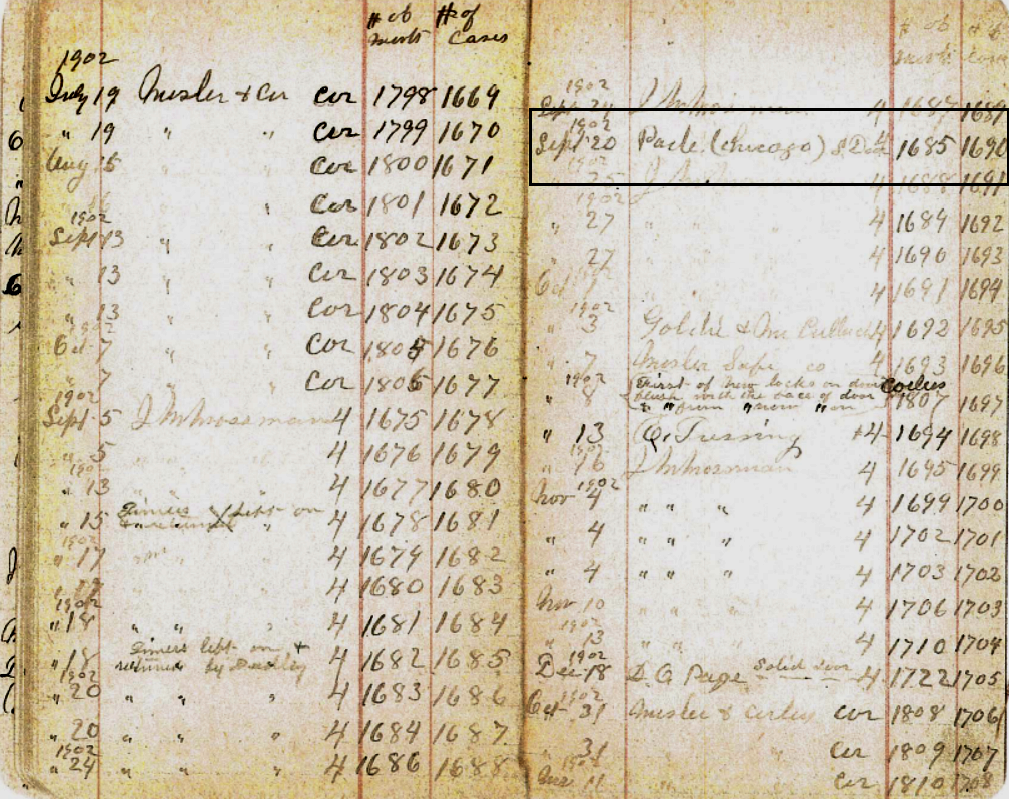 # of # of
works Cases
1902
July 19 Mosler & Cor Cor 1798 1669
" 19 " " Cor 1799 1670
Aug 5 Cor 1800 1671
" Cor 1801 1672
1902
Sept 13 " " Cor 1802 1673
" 13 " " Cor 1803 1674
" 13 " " Cor 1804 1675
1902
Oct 7 " " Cor 1805 1676
" 7 " " Cor 1806 1677
1902
Sept 5 J M Mossman 4 1675 1678
" 5 4 1676 1679
1902
" 13 4 1677 1680
" 15 Timers left on 4 1678 1681
1902
" 17 4 1679 1682
" 4 1680 1683
1902
" 18 " " 4 1681 1684
Timers left on +
" 18 by 4 1682 1685
1902
" 20 " " 4 1683 1686
" 20 " " " 4 1684 1687
1902
" 24 " " " 4 1686 1688
# of # of
1902
Sept 24 J M Mossman 4 1687 1689
1902
Sept 20 Pade (Chicago) S. Door 4 1685 1690
1902
25 J M 4 1688 1691
1902
" 27 " " " 4 1689 1692
" 27 4 1690 1693
Oct 1 4 1691 1694
1902
" 3 Goldie & McCulloch 4 1692 1695
" 7 Mosler Safe co 4 1693 1696
1902
First of new locks on
" 8 flush with the face of door 1807 1697
" " from " " " on
" 13 O. Tussing #4 1694 1698
1902
" 16 J M Mossman 4 1695 1699
1902
Nov 4 " " " 4 1699 1700
" 4 " " " 4 1702 1701
" 4 " " " 4 1703 1702
Nov 10 " " " 4 1706 1703
1902
" 13 " " " 4 1710 1704
1902
Dec 18 D. G. Page Solid door 4 1722 1705
1902
Oct 31 Mosler & Corley Cor 1808 1706
" 31 Cor 1809 1707
11 Cor 1810 1708